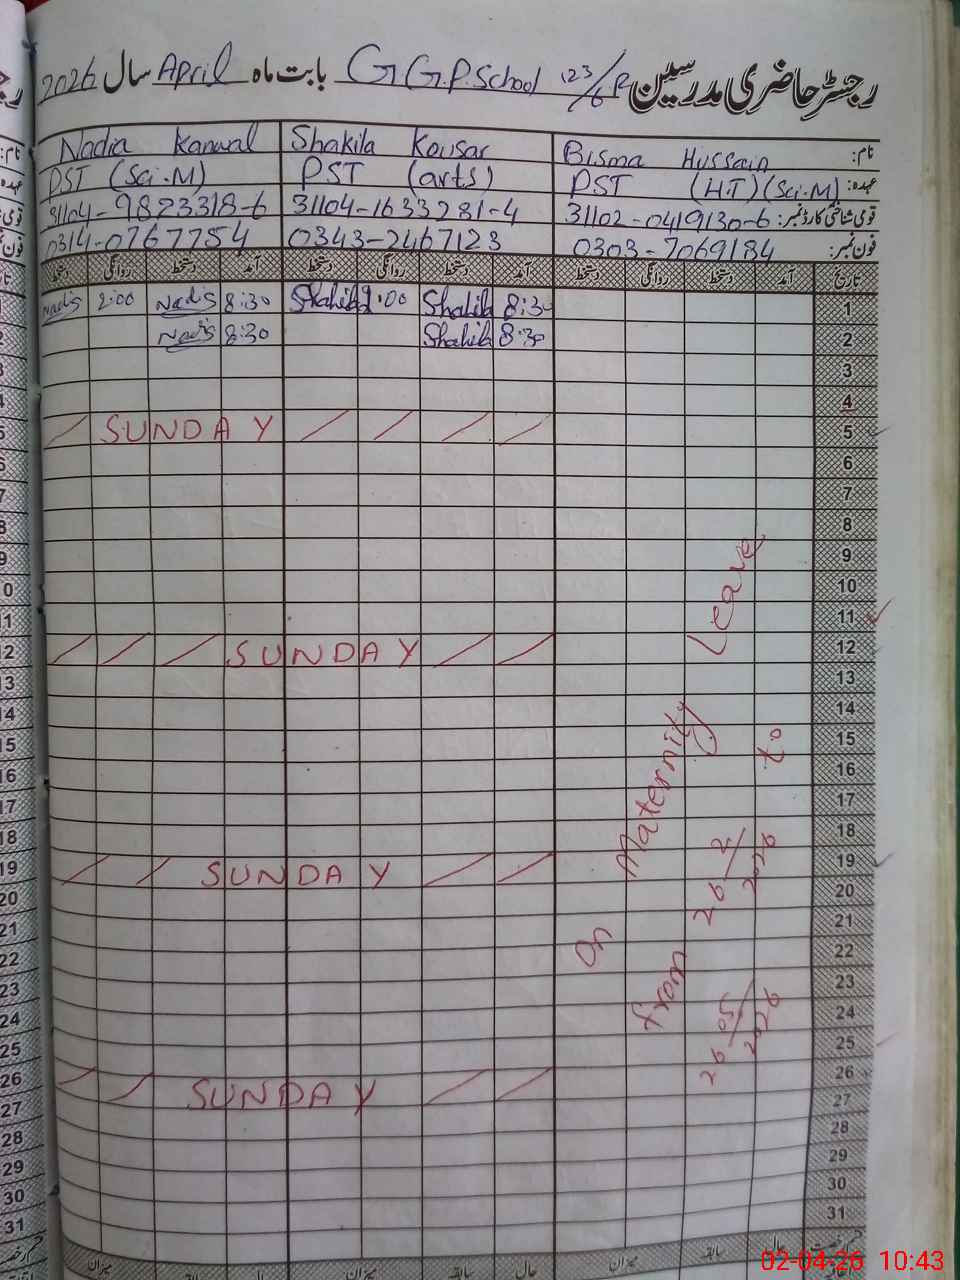 رجسٹر حاضری مدرسین G.G.P.School 123/6R بابت ماہ April سال 2026
نام: Bisma Hussain Shakila Kousar Nadia Kanwal
عہدہ: PST (H.T) (Sci.M) PST (arts) PST (Sci.M)
قومی شناختی کارڈ نمبر: 31102-0419130-6 31104-1633281-4 31104-9823318-6
فون نمبر: 0303-7069184 0343-2467123 0314-0767754
تاریخ آمد دستخط روانگی دستخط آمد دستخط روانگی دستخط آمد دستخط روانگی دستخط
1 8:30 Shakila 2:00 Shakila 8:30 Nadia 2:00 Nadia
2 8:30 Shakila 8:30 Nadia
3
4
5 SUNDAY
6
7
8
9
10
11
12 SUNDAY
13
14
15
16
17
18
19 SUNDAY
20
21
22
23
24
25
26 SUNDAY
27
28
29
30
31
On Maternity Leave
from 26/05/2026 26/2/2026 to
حال سابقہ میزان حال سابقہ میزان
02-04-26 10:43